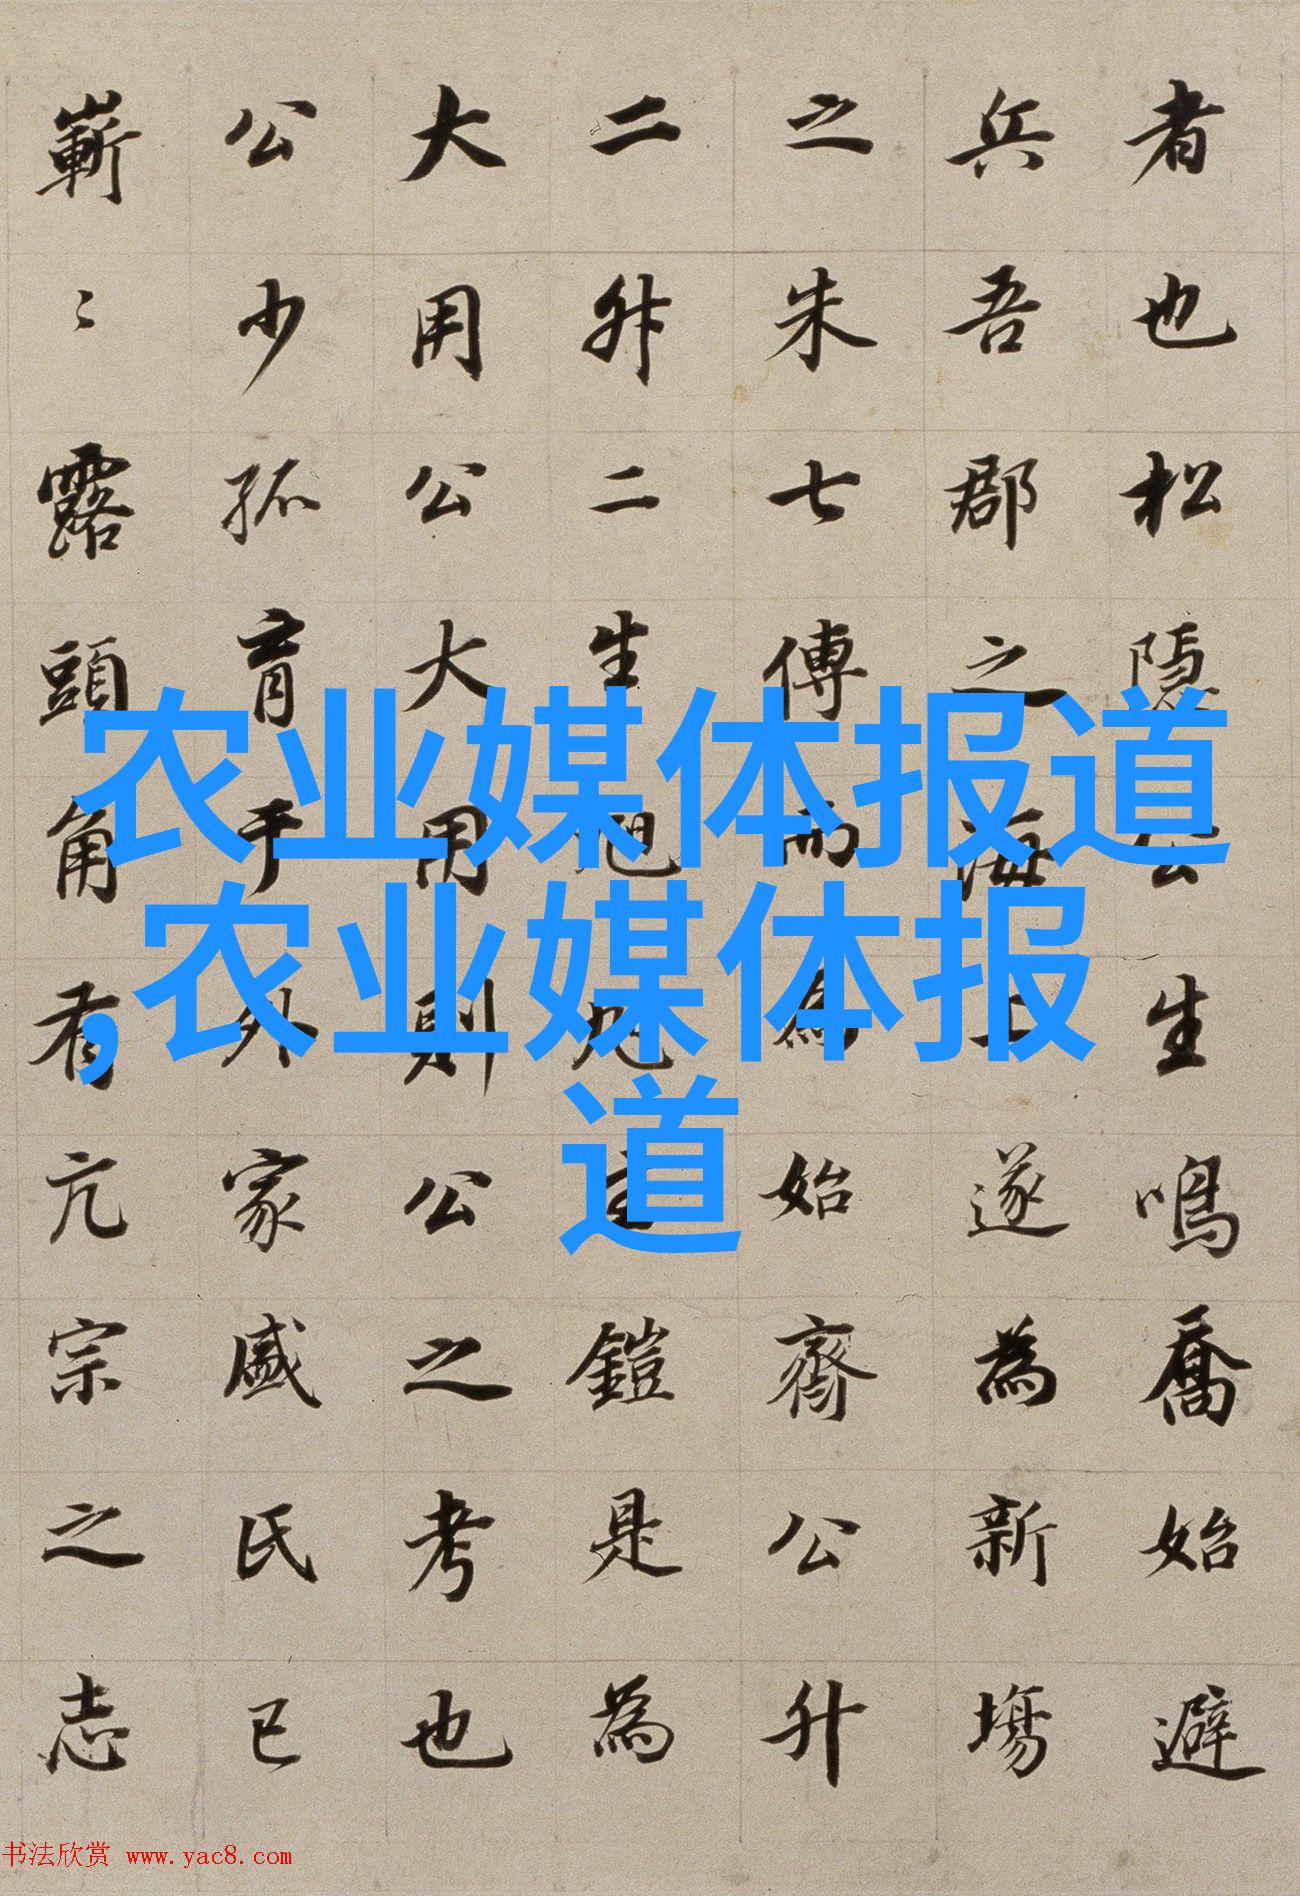 者也松隱公生鳴喬始避
兵吾郡之海上遂為新塲
之朱七傅而為始齊公升
二升二生旭旭生鎧是為
大用公大用則公之考也
公少孤育于外家盛氏已
嶄〻露頭角有亢宗之志
农业媒体报道
,农业媒体报
道
书法欣赏 www.yac8.com